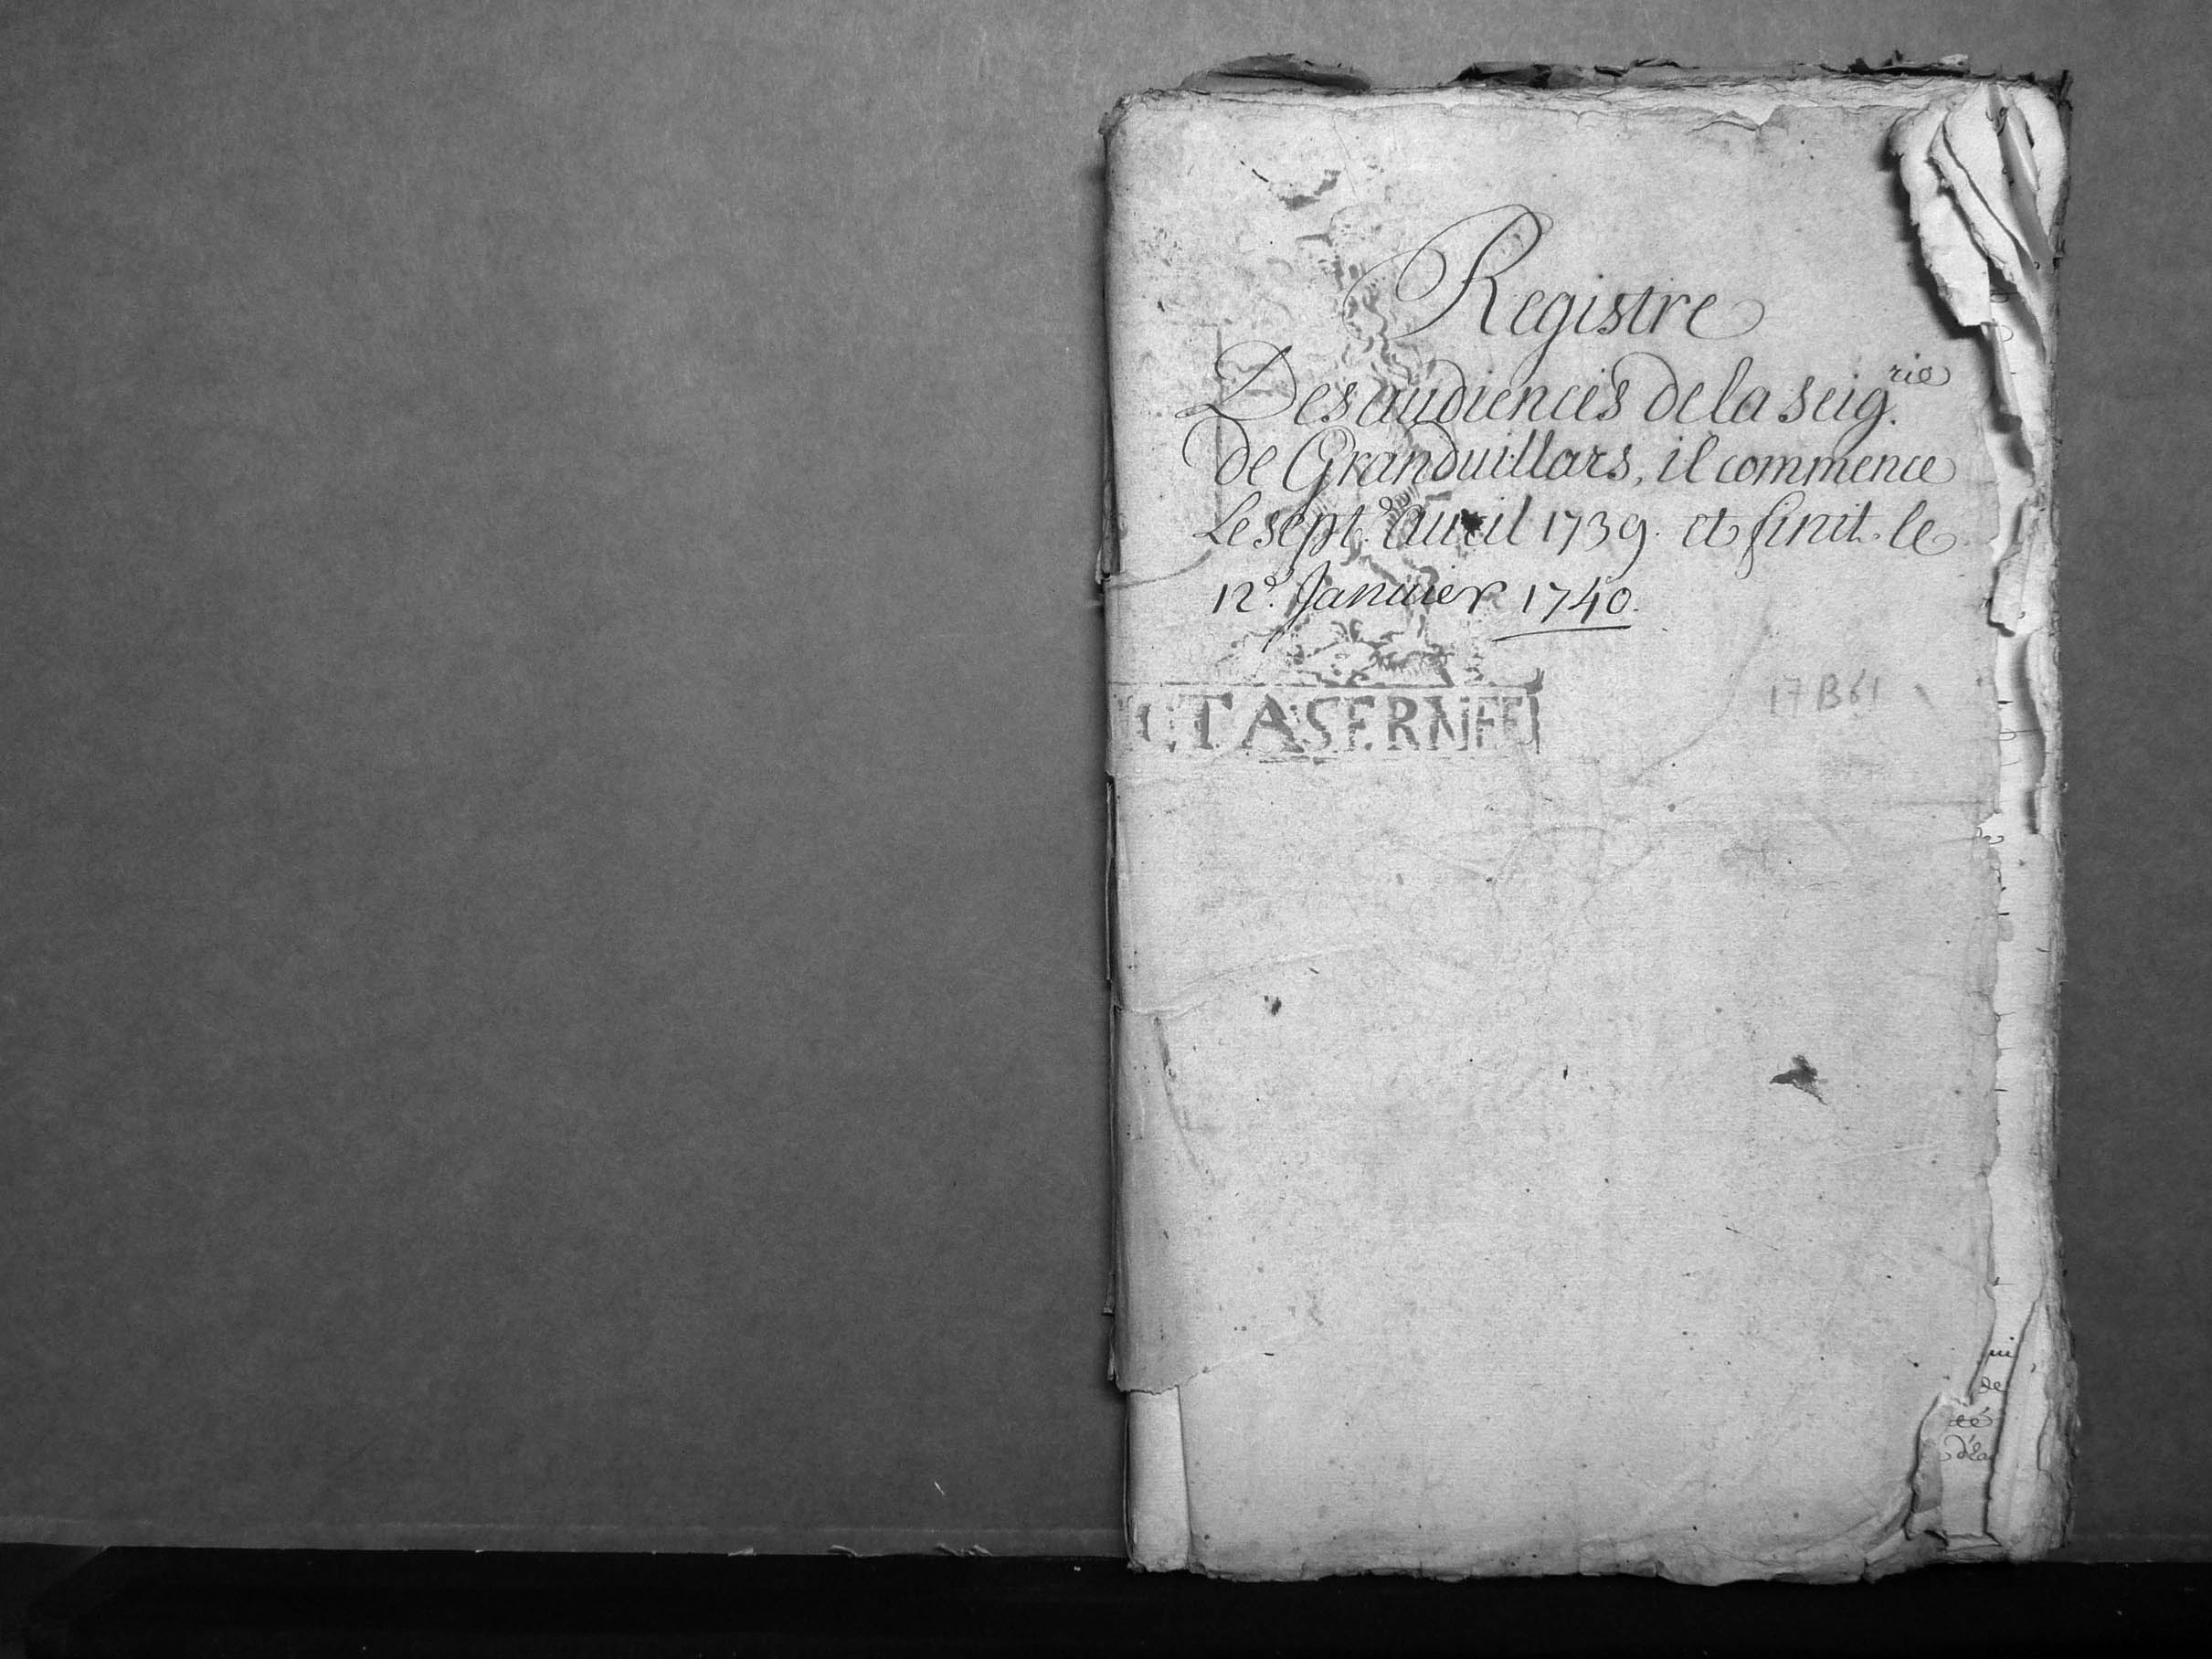 Registre
Des audiences de la seig.rie
de Granduillars, il commence
Le sept.e auril 1739. et finit. le
12.e Januier 1740.
17 B 61
TASERNE
ui
de
té